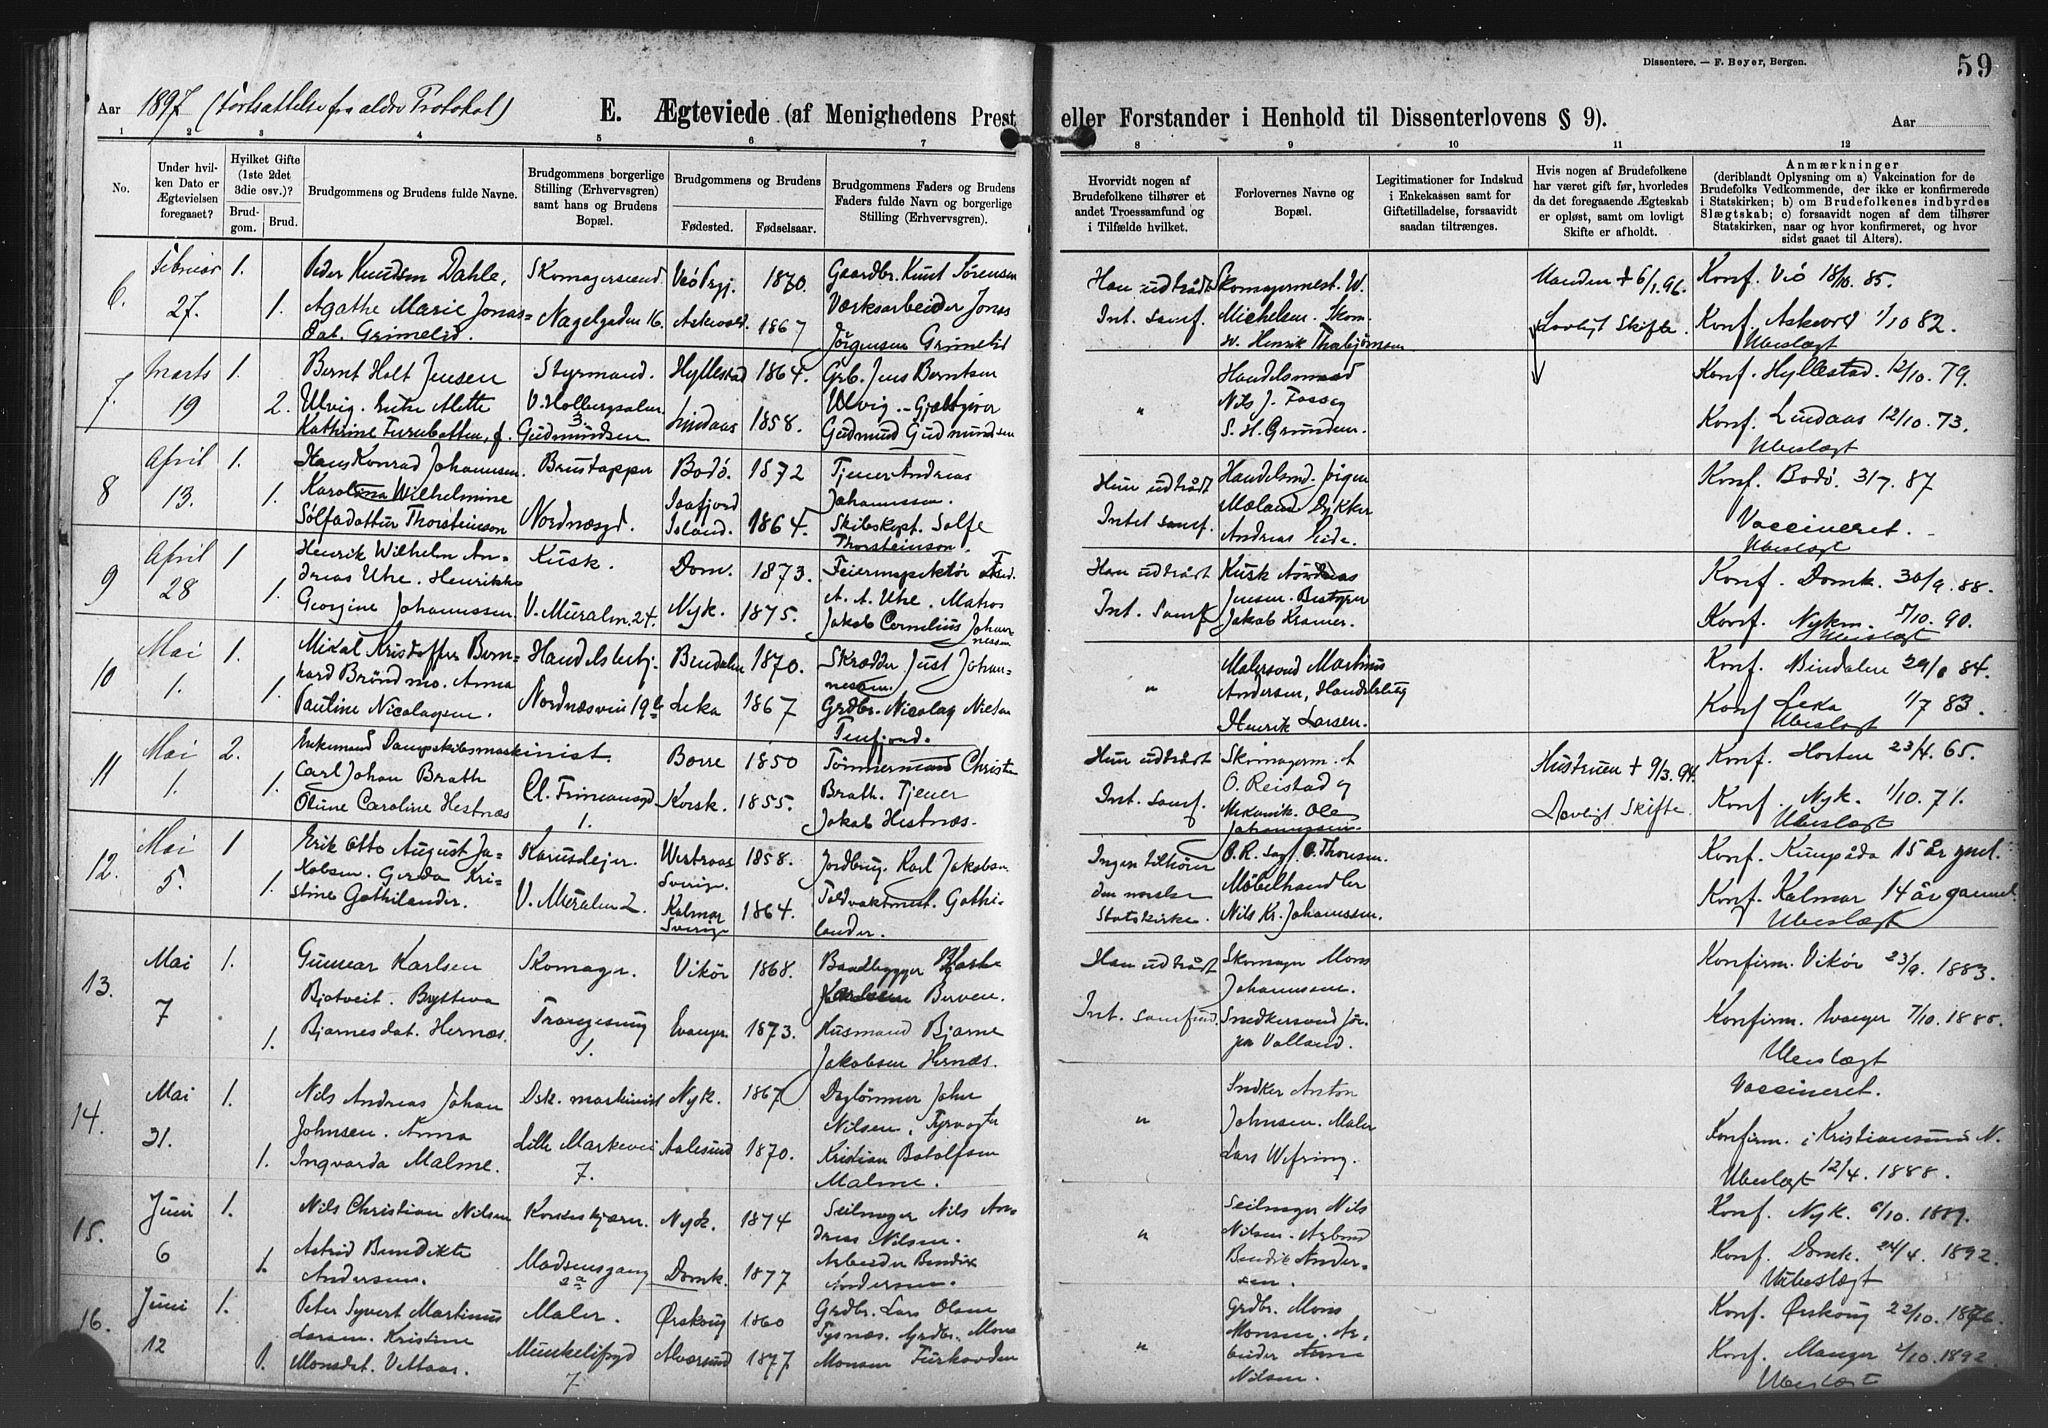 Dissentere. — F. Beyer, Bergen.
59
Aar 1897 (Fortsættelse fra ældre Protokol)
E. Ægteviede (af Menighedens Prest eller Forstander i Henhold til Dissenterlovens § 9).
Aar
1 2 3 4 5 6 7 8 9 10 11 12
No.
Under hvilken Dato er Ægtevielsen foregaaet?
Hvilket Gifte (1ste 2det 3die osv.)?
Brudgom.
Brud.
Brudgommens og Brudens fulde Navne.
Brudgommens borgerlige Stilling (Erhvervsgren) samt hans og Brudens Bopæl.
Brudgommens og Brudens
Fødested.
Fødselsaar.
Brudgommens Faders og Brudens Faders fulde Navn og borgerlige Stilling (Erhvervsgren).
Hvorvidt nogen af Brudefolkene tilhører et andet Troessamfund og i Tilfælde hvilket.
Forlovernes Navne og Bopæl.
Legitimationer for Indskud i Enkekassen samt for Giftetilladelse, forsaavidt saadan tiltrænges.
Hvis nogen af Brudefolkene har været gift før, hvorledes det foregaaende Ægteskab er opløst, samt om lovligt Skifte er afholdt.
Anmærkninger
(deriblandt Oplysning om a) Vakcination for de Brudefolks Vedkommende, der ikke er konfirmerede i Statskirken; b) om Brudefolkenes indbyrdes Slægtskab; c) forsaavidt nogen af dem tilhører Statskirken, naar og hvor konfirmeret, og hvor sidst gaaet til Alters).
6. Februar 27. 1. 1.
Peder Knudsen Dahle,
Agathe Marie Jonas=
dat. Grimelid.
Skomagersvend
Nagelgaden 16.
Veö Prgj. 1870.
Askevold 1867
Gaardbr. Knut Sørensen
Værksarbeider Jonas
Jörgensen Grimelid
Han udtrådt
Int. samf.
Skomagermest. W.
Michelsen. Skom.
W. Henrik Thorbjørnsen
Manden + 6/1.96.
Lovligt Skifte.
Konf. Veö 18/10 85.
Konf. Askevold 1/10 82.
Ubeslægt
7. Marts 19 1. 2.
Bernt Holt Jensen
Ulvig. Enke Mette
Kathrine Furubotten, f. Gudmundsen
Styrmand.
V. Holbergsalm.
3.
Hyllestad 1864.
Lindaas 1858.
Grb. Jens Berntsen
Ulvig. - Gjæstgiver
Gudmund Gudmundsen
"
Handelsmand
Nils J. Fosse og
S. H. Grunden.
Konf. Hyllestad. 12/10. 79.
Konf. Lindaas 12/10. 73.
Ubeslægt
8 April 13. 1. 1.
Hans Konrad Johannsen.
Karolina Wilhelmine
Sølfadottur Thorsteinson
Brustapper
Nordnæsgd.
Bodö. 1872
Isafjord
Island. 1864.
Tjener Andreas
Johannssen.
Skibskapt. Sölfe
Thorsteinson.
Hun udtrådt
Intet samf.
Handelsmd. Jörgen
Mæland Dykker
Andreas Eide.
Konf. Bodö. 31/7. 87
Vaccineret.
Ubeslægt
9 April 28 1 1.
Henrik Wilhelm An-
dreas Uhe. Henrikke
Georgine Johannssen.
Kusk.
V. Muralm. 24.
Dom. 1873.
Nyk. 1875.
Feierinspektör Fred.
A. A. Uhe. Matros
Jakob Cornelius Johan-
nessen
Han udtrådt
Int. Samf.
Kusk Andreas
Jensen. Bestyrer
Jakob Kramer.
Konf. Domk. 30/9. 88.
Konf. Nykm. 5/10. 90.
Ubeslægt
10 Mai 1. 1. 1.
Mikal Kristoffer Bern-
hard Bröndmo. Anna
Pautine Nicolaysen.
Handelsbetj.
Nordnæsvei 19b
Bindalen 1870.
Leka 1867
Skrædder Just Johan-
nessen.
Grdbr. Nicolay Nilsen
Terfjord.
"
Malersvend Martinus
Andersen, Handelsbetj
Henrik Larsen.
Konf. Bindalen 29/6 84.
Konf Leka 1/7 83.
Ubeslægt
11 Mai 1. 2. 1.
Enkemand Dampskibsmaskinist.
Carl Johan Brath
Oline Caroline Hestnæs
Cl. Frimansgd
1.
Borre 1850
Korsk. 1855.
Tömmermand Christen
Brath. Tjener
Jakob Hestnæs.
Hun udtrådt
Int. samf.
Skomagerm. A
O. Reistad og
Mekanik. Ole
Johannssen.
Hustruen + 9/3.94.
Lovligt Skifte.
Konf. Horten 23/4. 65.
Konf. Nyk. 1/10. 71.
Ubeslægt
12. Mai 5. 1 1.
Erik Otto August Ja-
kobsen. Gerda Kri-
stine Gothilander.
Karusdejer.
V. Muralm 2.
Sverige. 1858.
Kalmar 1864.
Sverige
Jordbrug. Karl Jakobsen
Toldvaktmest. Gothi-
lander.
Ingen tilhörer
den norske
Statskirke.
Möbelhandler
Nils Kr. Johannsen.
Konf. 15 år gml.
Konf. Kalmar 14 år gammel.
Ubeslægt
13. Mai 7 1. 1.
Gunnar Karlsen
Bjotveit. Brytteva
Bjarnesdat. Hernæs.
Skomager.
Trangesmug
1.
Vikör 1868.
Evanger. 1873.
Berven.
Husmand Bjarne
Jakobsen Hernæs.
Han udtrådt
Int. samfund.
Skomager Mons
Johannsen.
Snedkersvend Jör-
gen Valland.
Konfirm. Vikör 23/9. 1883.
Konfirm. Evanger 7/10. 1888.
Ubeslægt
14. Mai 21. 1. 1.
Nils Andreas Johan
Johnsen. Anna
Ingvarda Malme.
Dsk. maskinist
Lille Markevei
7.
Nyk. 1867
Aalesund 1870.
Daglönner John
Nilsen. Fyrvogter
Kristian Botolfsen
Malme.
"
Snedker Anton
Johnsen. Maler
Lars Wefring.
Vaccineret.
Konfirm. i Kristiansund N.
Ubeslægt 12/4. 1888.
15. Juni 6 1. 1.
Nils Christian Nilsen
Astrid Bendikte
Andersen.
Madsensgang
2a
Nyk. 1874
Domk. 1877
Seilmager Nils An-
dreas Nilsen.
Arbeider Bendix
Andersen.
"
Seilmager Nils
Nilsen. Arbmd
Bendik Ander-
sen.
Konf. Nyk. 6/10. 1889.
Konf. Domk. 24/4. 1892.
Ubeslægt
16. Juni 12 1. 1.
Peter Syvert Martinus
Larsen. Kristine
Monsdat. Vettaas.
Maler.
Munkelifsgd
7
Ørskoug 1860
Alversund 1877
Grdbr. Lars Olsen
Tysnæs. Grdbr. Mons
Monsen
"
Grdbr. Mons
Monsen. Ar-
beider Arne
Nilsen.
Konf. Ørskoug 22/10. 1876.
Konf. Manger 2/10. 1892.
Ubeslægt